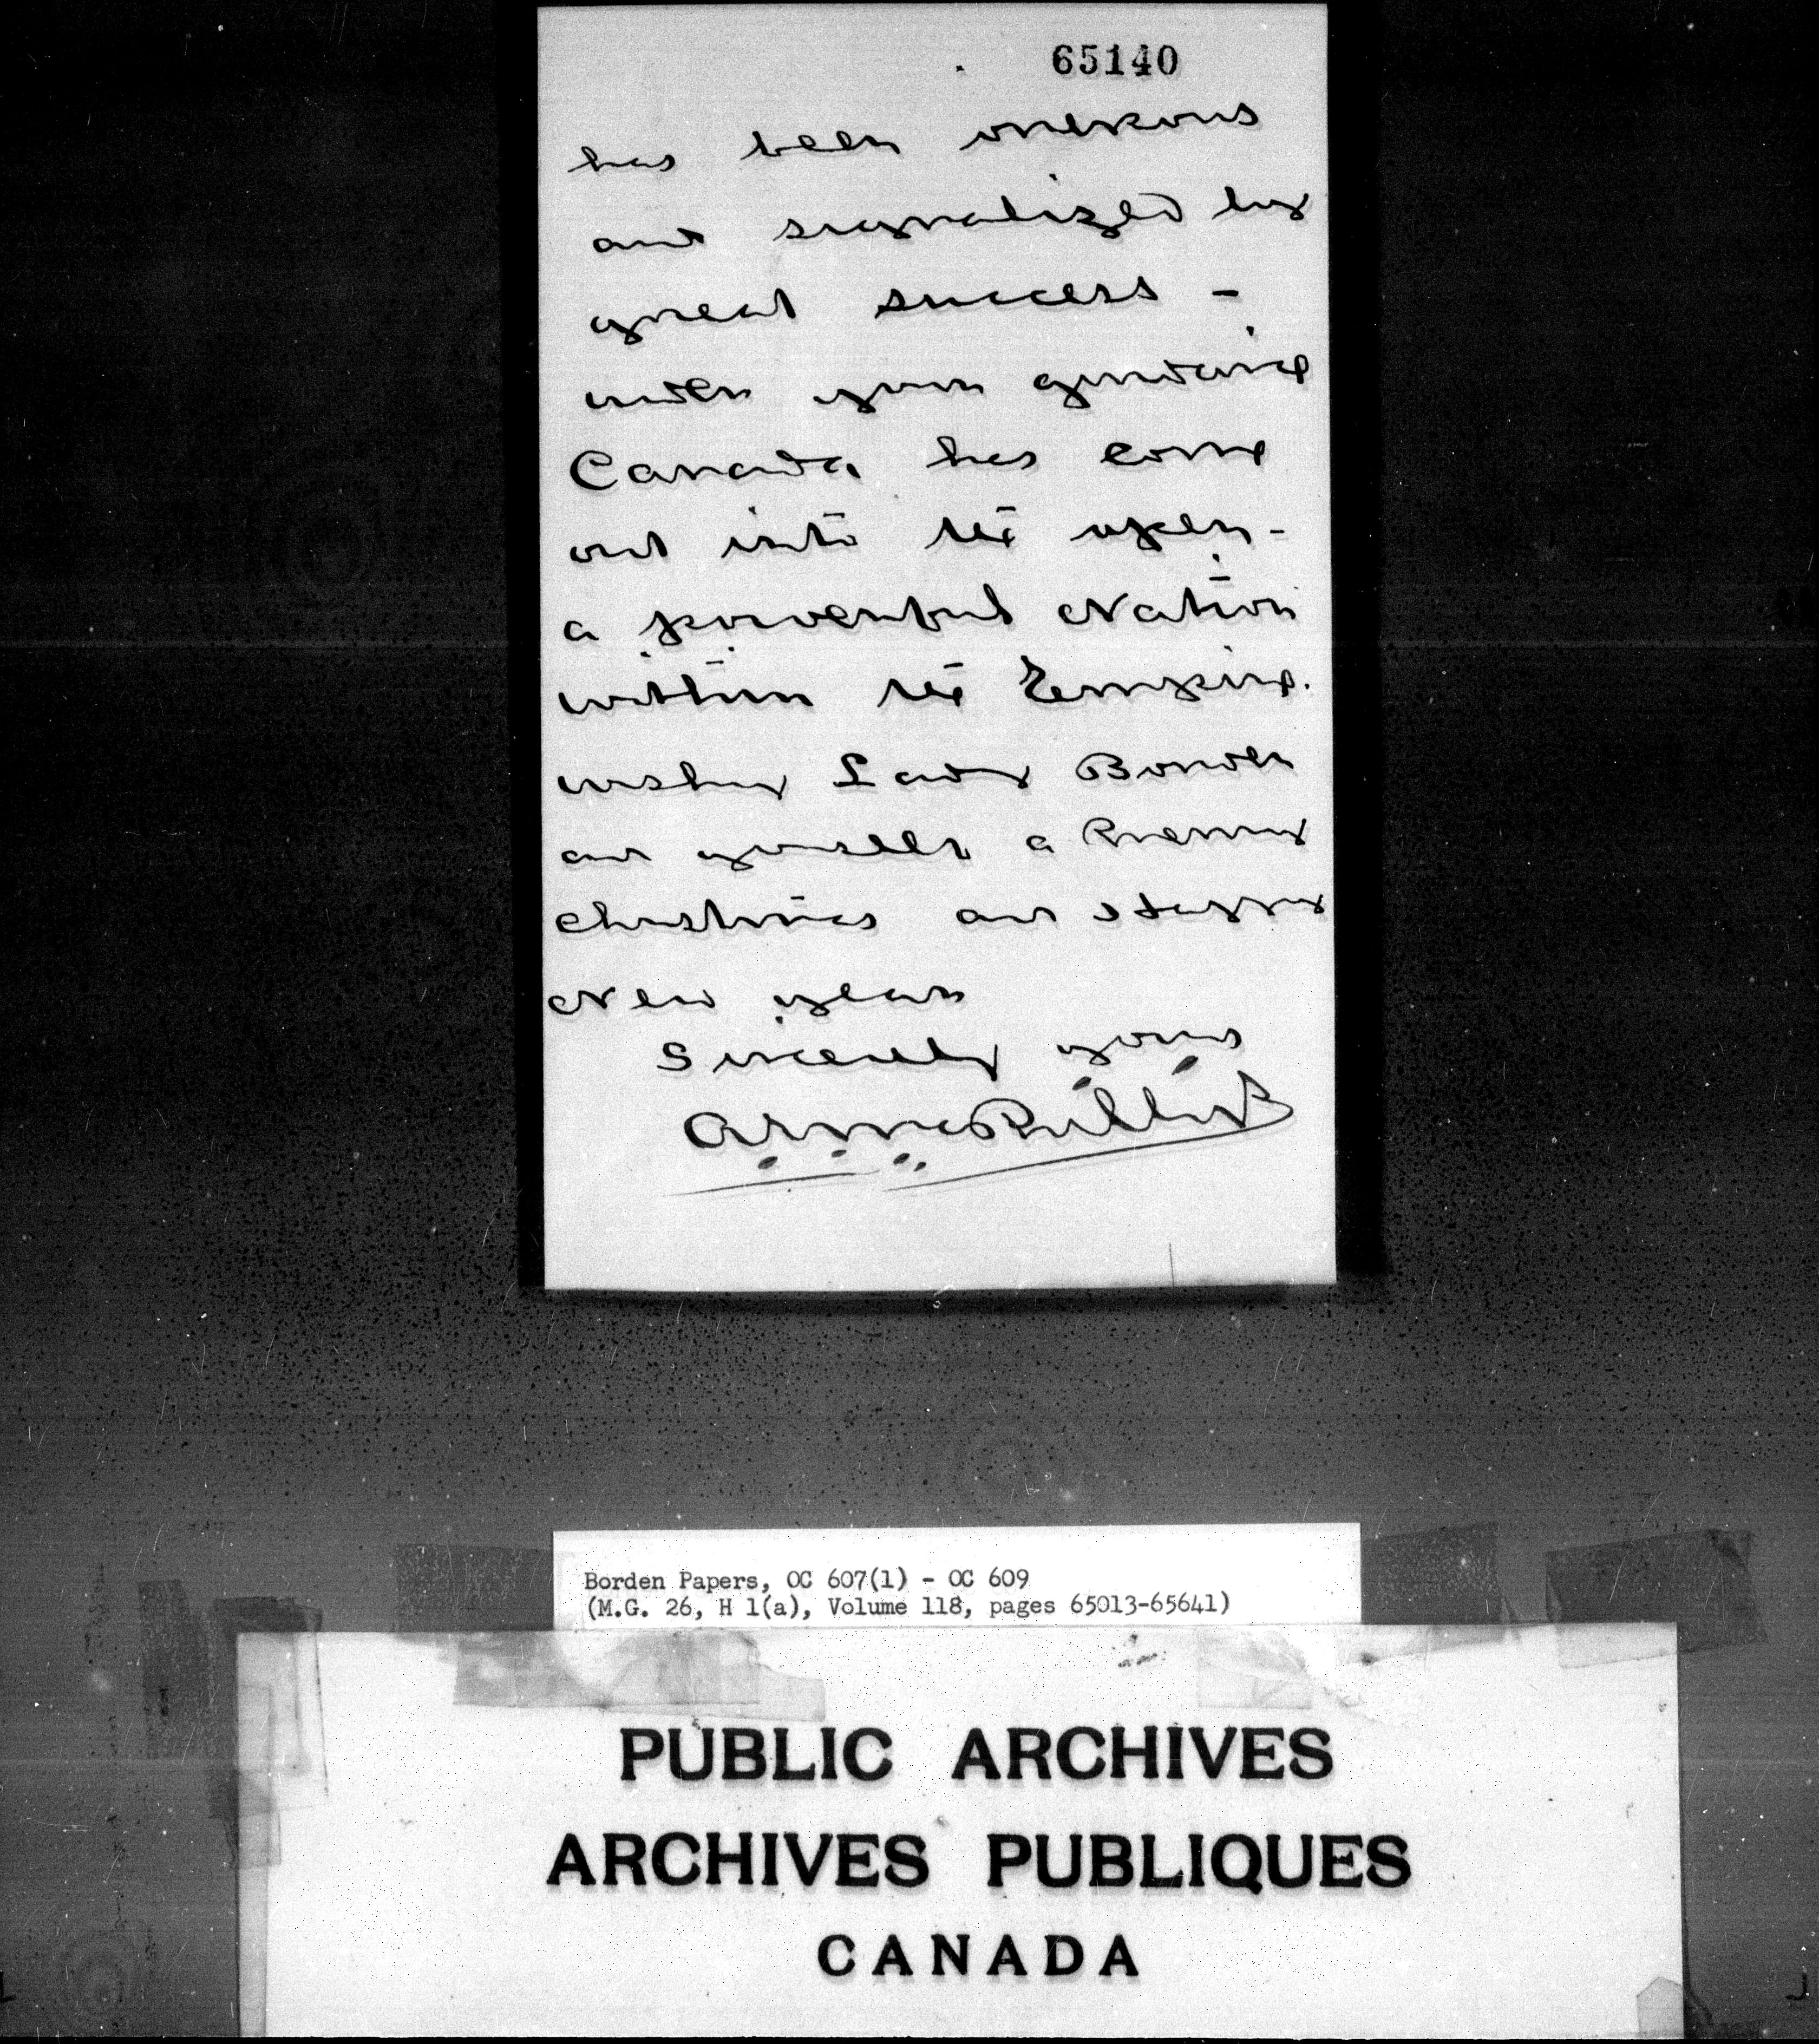 65140
has been onerous
and signalized by
great success -
under your guidance
Canada has come
out into the open -
a powerful Nation
within the Empire.
wishing Lady Borden
and yourself a Merry
Christmas and Happy
New year
Sincerely yours
Borden Papers, OC 607(1) - OC 609
(M.G. 26, H 1(a), Volume 118, pages 65013-65641)
PUBLIC ARCHIVES
ARCHIVES PUBLIQUES
CANADA